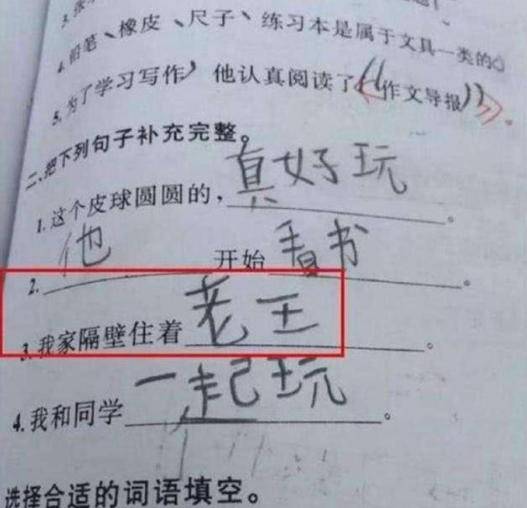 4.铅笔、橡皮、尺子、练习本是属于文具一类的。
5.为了学习写作,他认真阅读了《作文导报》。
二、把下列句子补充完整。
1.这个皮球圆圆的,真好玩。
2.他开始看书。
3.我家隔壁住着老王。
4.我和同学一起玩。
选择合适的词语填空。